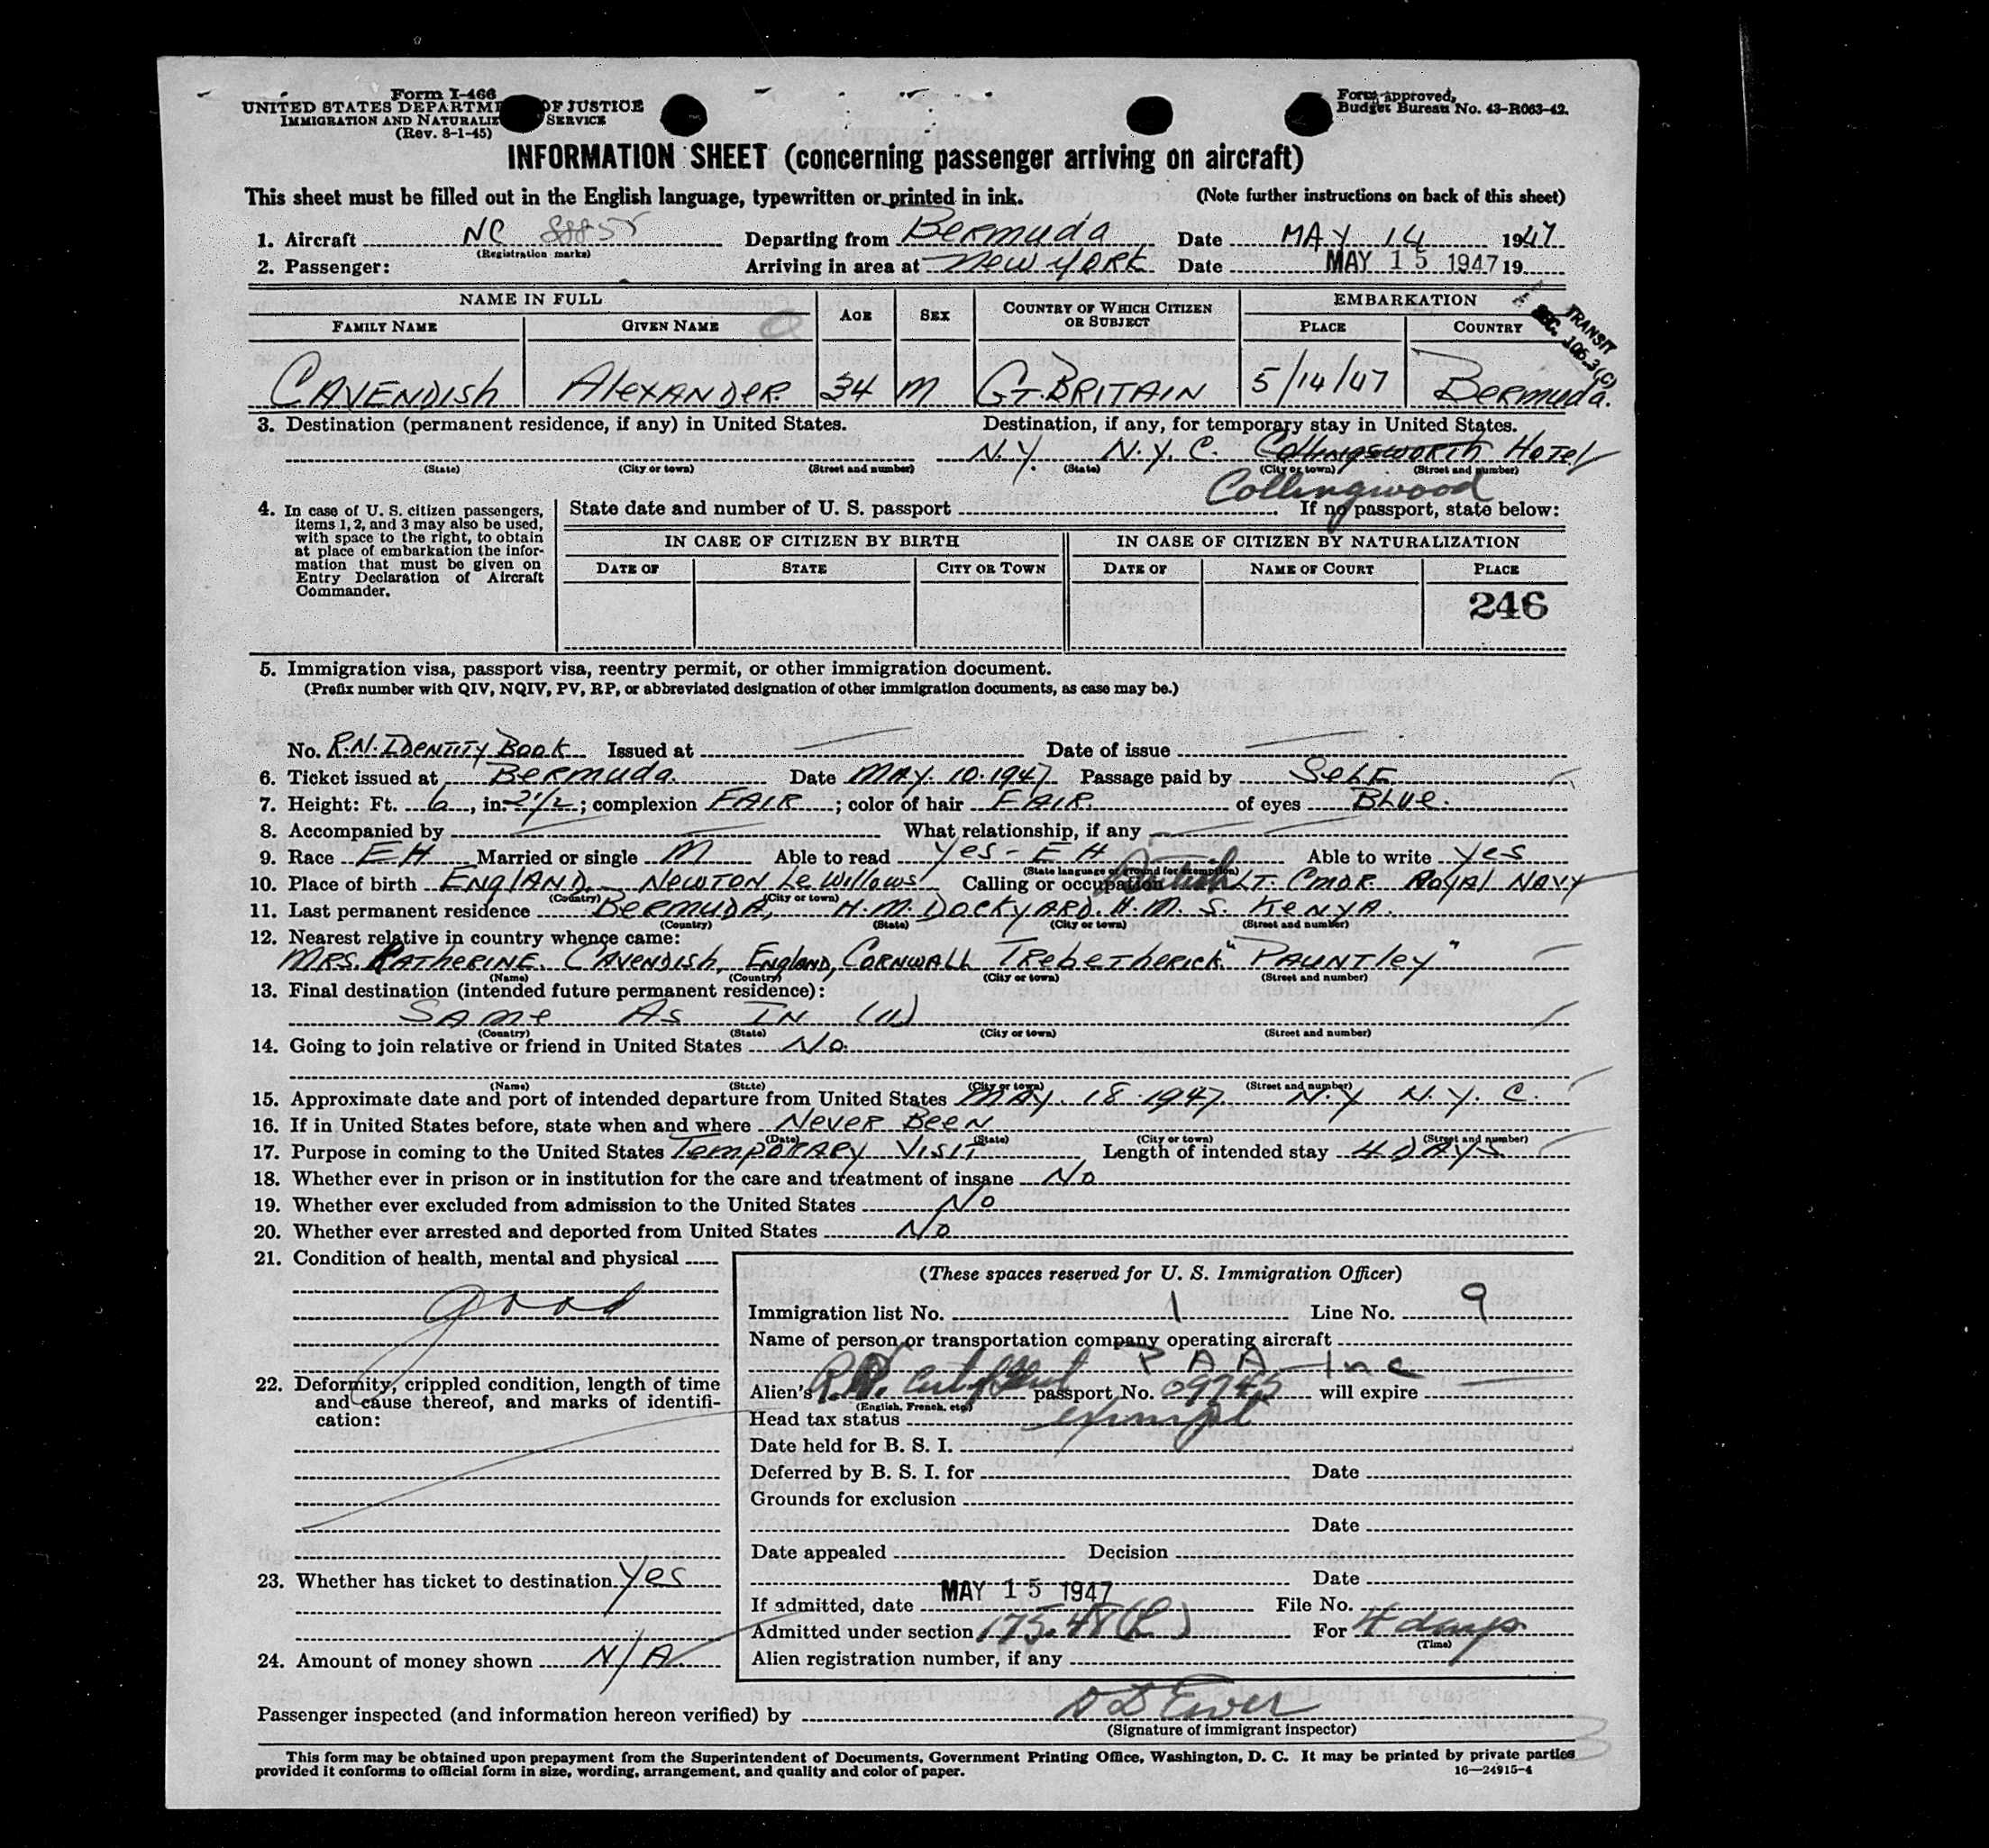 Form I-466
UNITED STATES DEPARTME OF JUSTICE
IMMIGRATION AND NATURALIZ SERVICE
(Rev. 8-1-45)
Form approved,
Budget Bureau No. 43-R063-42.
INFORMATION SHEET (concerning passenger arriving on aircraft)
This sheet must be filled out in the English language, typewritten or printed in ink. (Note further instructions on back of this sheet)
1. Aircraft NC 88855 Departing from Bermuda Date MAY 14 1947
(Registration marks)
2. Passenger: Arriving in area at New York Date MAY 15 1947 19
TRANSIT
SEC. 106.3(C)
NAME IN FULL AGE SEX COUNTRY OF WHICH CITIZEN OR SUBJECT EMBARKATION
FAMILY NAME GIVEN NAME PLACE COUNTRY
CAVENDISH ALEXANDER 34 M GT. BRITAIN 5/14/47 Bermuda.
3. Destination (permanent residence, if any) in United States. Destination, if any, for temporary stay in United States.
N.Y. N.Y.C. Collingsworth Hotel
(State) (City or town) (Street and number) (State) (City or town) (Street and number)
Collingwood
4. In case of U. S. citizen passengers, items 1, 2, and 3 may also be used, with space to the right, to obtain at place of embarkation the information that must be given on Entry Declaration of Aircraft Commander.
State date and number of U. S. passport If no passport, state below:
IN CASE OF CITIZEN BY BIRTH IN CASE OF CITIZEN BY NATURALIZATION
DATE OF STATE CITY OR TOWN DATE OF NAME OF COURT PLACE
246
5. Immigration visa, passport visa, reentry permit, or other immigration document.
(Prefix number with QIV, NQIV, PV, RP, or abbreviated designation of other immigration documents, as case may be.)
No. R.N. Identity Book Issued at Date of issue
6. Ticket issued at Bermuda. Date MAY. 10. 1947 Passage paid by Self
7. Height: Ft. 6, in. 2 1/2; complexion FAIR; color of hair FAIR. of eyes Blue.
8. Accompanied by What relationship, if any
9. Race EH Married or single M Able to read Yes - EH Able to write Yes
(State language or ground for exemption)
10. Place of birth ENGLAND. NEWTON Le Willows Calling or occupation British LT. CMDR. ROYAL NAVY
(Country) (City or town)
11. Last permanent residence BERMUDA, H.M. DOCKYARD. H.M.S. KENYA.
(Country) (State) (City or town) (Street and number)
12. Nearest relative in country whence came:
MRS. KATHERINE. CAVENDISH, ENGLAND, CORNWALL TREBETHERICK "PAUNTLEY"
(Name) (Country) (City or town) (Street and number)
13. Final destination (intended future permanent residence):
SAME AS IN (11)
(Country) (State) (City or town) (Street and number)
14. Going to join relative or friend in United States No.
(Name) (State) (City or town) (Street and number)
15. Approximate date and port of intended departure from United States MAY. 18. 1947 N.Y N.Y.C.
16. If in United States before, state when and where Never Been
(Date) (State) (City or town) (Street and number)
17. Purpose in coming to the United States Temporary Visit Length of intended stay 4 DAYS
18. Whether ever in prison or in institution for the care and treatment of insane No
19. Whether ever excluded from admission to the United States No
20. Whether ever arrested and deported from United States No
21. Condition of health, mental and physical
good
22. Deformity, crippled condition, length of time and cause thereof, and marks of identification:
23. Whether has ticket to destination Yes
24. Amount of money shown N/A.
(These spaces reserved for U. S. Immigration Officer)
Immigration list No. 1 Line No. 9
Name of person or transportation company operating aircraft
P A A - Inc
Alien's passport No. 09745 will expire
(English, French, etc.)
Head tax status exempt
Date held for B. S. I.
Deferred by B. S. I. for Date
Grounds for exclusion
Date
Date appealed Decision
Date
If admitted, date MAY 15 1947 File No.
Admitted under section 175.45(L) For 4 days
(Time)
Alien registration number, if any
Passenger inspected (and information hereon verified) by
(Signature of immigrant inspector)
This form may be obtained upon prepayment from the Superintendent of Documents, Government Printing Office, Washington, D. C. It may be printed by private parties
provided it conforms to official form in size, wording, arrangement, and quality and color of paper. 16—24915-4